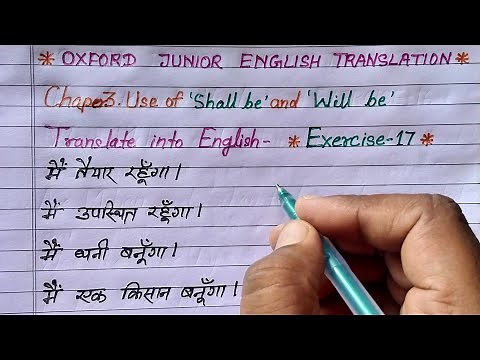 * OXFORD JUNIOR ENGLISH TRANSLATION *
Chap. 3. Use of 'Shall be' and 'Will be'
Translate into English- * Exercise-17 *
मैं तैयार रहूँगा।
मैं उपस्थित रहूँगा।
मैं धनी बनूँगा।
मैं एक किसान बनूँगा।